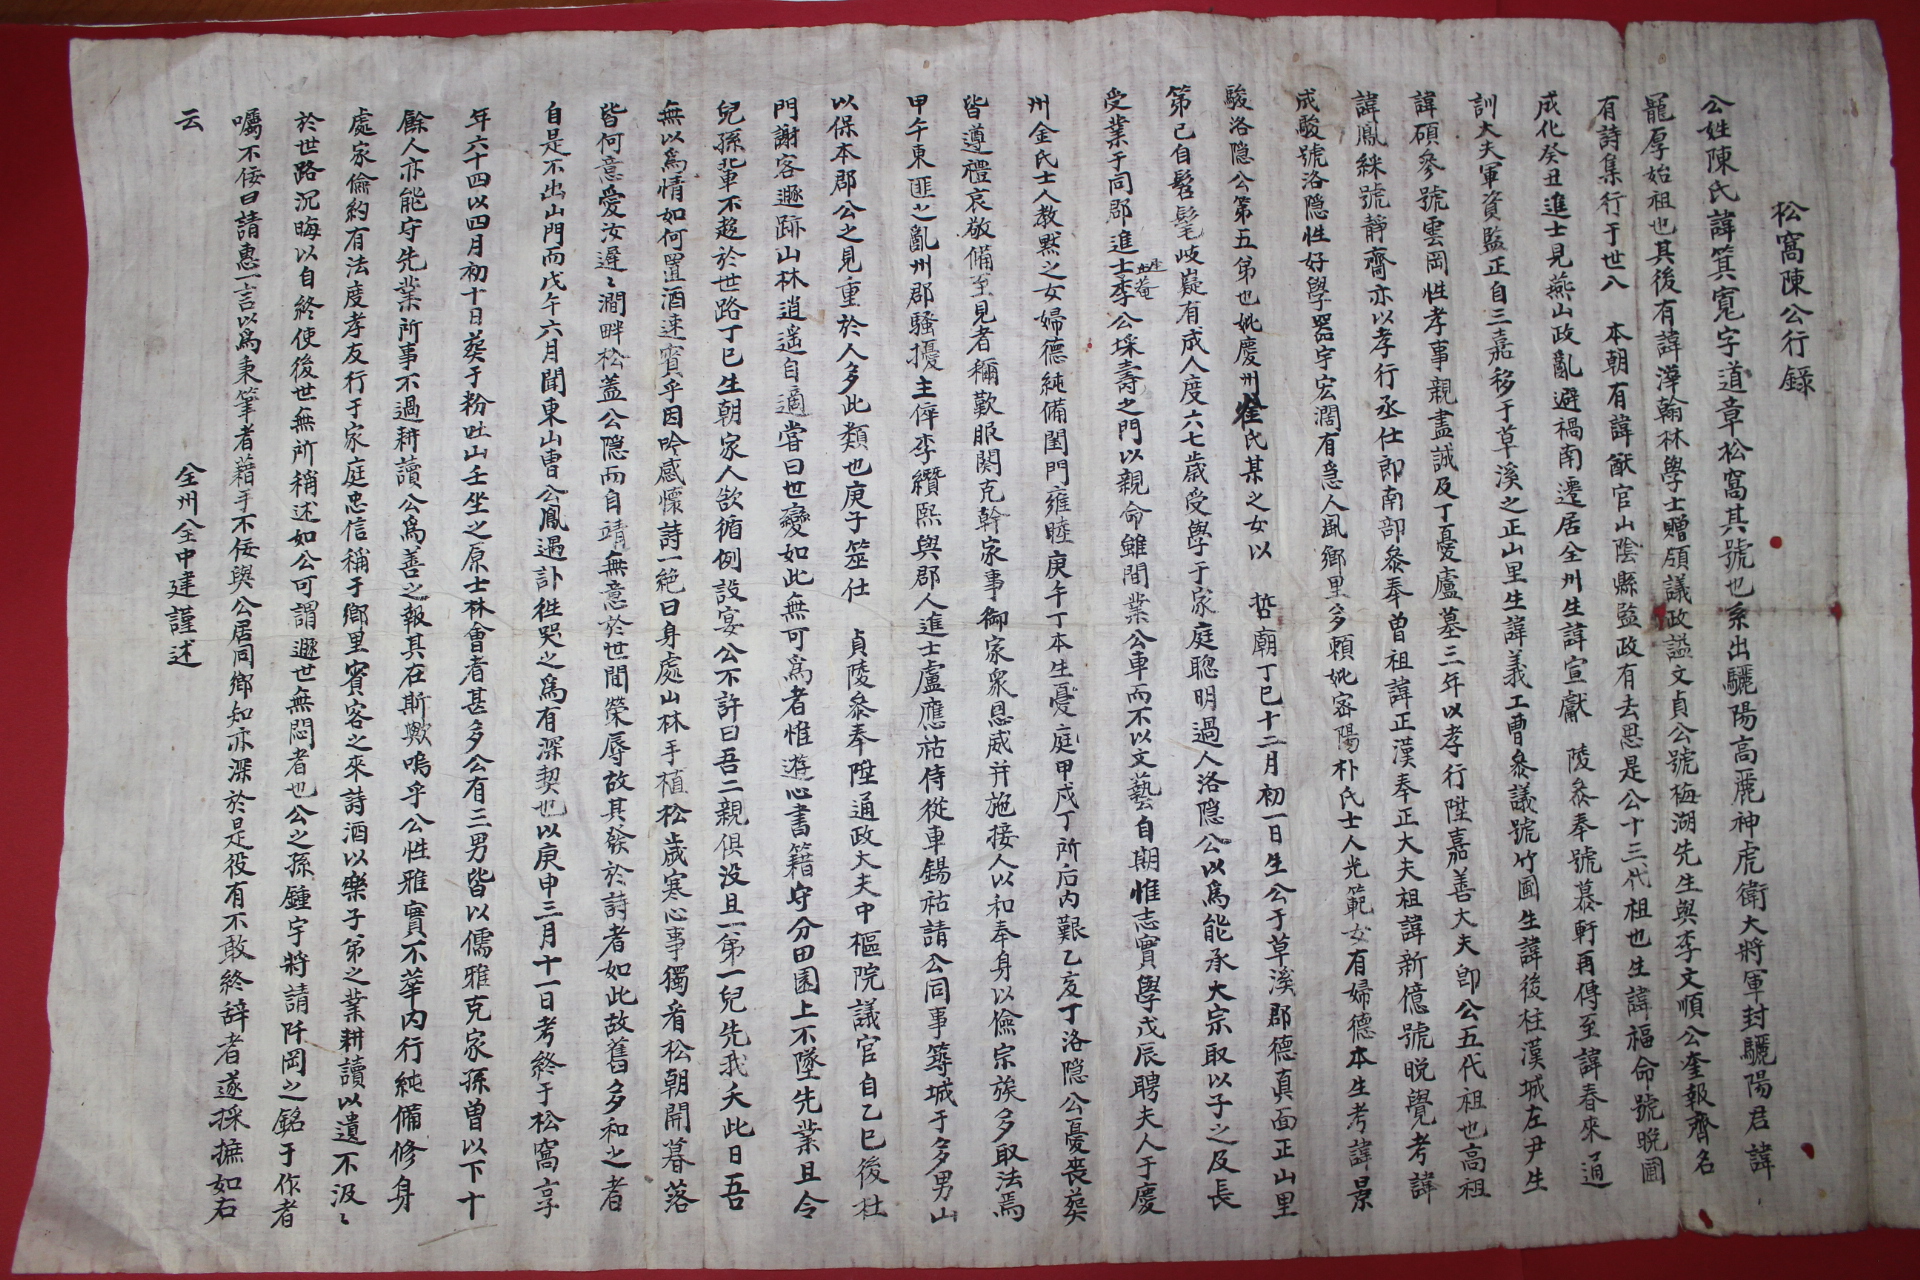 松窩陳公行錄
公姓陳氏諱箕寬字道章松窩其號也系出驪陽高麗神虎衛大將軍封驪陽君諱
寵厚始祖也其後有諱澕翰林學士贈領議政謚文貞公號梅湖先生與李文順公奎報齊名
有詩集行于世入 本朝有諱猷官山陰縣監政有去思是公十三代祖也生諱福命號晩圃
成化癸丑進士見燕山政亂避禍南遷居全州生諱宣獻 陵叅奉號慕軒再傳至諱春來通
訓大夫軍資監正自三嘉移于草溪之正山里生諱義工曹叅議號竹圃生諱後柱漢城左尹生
諱碩參號雲岡性孝事親盡誠及丁憂廬墓三年以孝行陞嘉善大夫卽公五代祖也高祖
諱鳳綵號靜齋亦以孝行丞仕郎南部叅奉曾祖諱正漢奉正大夫祖諱新億號晩覺考諱
成駿號洛隱性好學器宇宏濶有急人風鄉里多賴妣密陽朴氏士人光範女有婦德本生考諱景
駿洛隱公第五弟也妣慶州崔氏某之女以 哲廟丁巳十二月初一日生公于草溪郡德眞面正山里
第已自髫髦岐嶷有成人度六七歲受學于家庭聰明過人洛隱公以爲能承大宗取以子之及長
受業于同郡進士李公埰壽之門以親命雖間業公車而不以文藝自期惟志實學戊辰聘夫人于慶
州金氏士人敎默之女婦德純備閨門雍睦庚午丁本生憂庭甲戌丁所后內艱乙亥丁洛隱公憂喪葬
皆遵禮哀敬備至見者稱歎服関克幹家事御家衆恩威幷施接人以和奉身以儉宗族多取法焉
甲午東匪之亂州郡騷擾主倅李纘熙與郡人進士盧應祜侍從車錫祜請公同事築城于多男山
以保本郡公之見重於人多此類也庚子筮仕 貞陵叅奉陞通政大夫中樞院議官自乙巳後杜
門謝客遯跡山林逍遙自適嘗曰世變如此無可爲者惟遊心書籍守分田園上不墜先業且令
兒孫輩不趍於世路丁巳生朝家人欲循例設宴公不許曰吾二親俱沒且一弟一兒先我夭此日吾
無以爲情如何置酒速賓乎因吟感懷詩一絶曰身處山林手植松歲寒心事獨看松朝開暮落
皆何意愛汝遲〻澗畔松盖公隱而自靖無意於世間榮辱故其發於詩者如此故舊多和之者
自是不出山門而戊午六月聞東山曺公鳳遇訃徃哭之爲有深契也以庚申三月十一日考終于松窩享
年六十四以四月初十日葬于粉吐山壬坐之原士林會者甚多公有三男皆以儒雅克家孫曾以下十
餘人亦能守先業所事不過耕讀公爲善之報其在斯歟嗚乎公性雅實不華內行純備修身
處家倫約有法度孝友行于家庭忠信稱于鄕里賓客之來詩酒以樂子弟之業耕讀以遺不汲〻
於世路沉晦以自終使後世無所稱述如公可謂遯世無悶者也公之孫鍾宇將請阡岡之銘于作者
囑不佞曰請惠一言以爲秉筆者藉手不佞與公居同鄕知亦深於是役有不敢終辞者遂採摭如右
云
全州全中建謹述